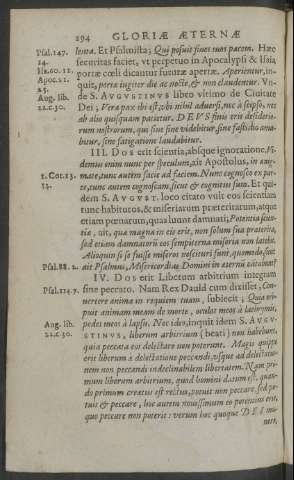 294 GLORIÆ ÆTERNÆ
Psal. 147.
14.
Isa. 60. 11.
Apoc. 21.
25.
Aug. lib.
22. c. 30.
1. Cor. 13.
12.
Psal. 88. 2.
Psal. 114. 7.
Aug. lib.
22. c. 30.
lenta. Et Psalmista; Qui posuit fines tuos pacem. Hæc
securitas faciet, vt perpetuo in Apocalypsi & Isaia
portæ cœli dicantur futuræ apertæ. Aperientur, in-
quit, portæ iugiter die ac nocte, & non claudentur. Vn-
de S. AVGVSTINVS libro vltimo de Ciuitate
Dei; Vera pax ibi est, vbi nihil aduersi, nec à seipso, nec
ab alio quisquam patietur. DEVS finis erit desiderio-
rum nostrorum, qui sine fine videbitur, sine fastidio ama-
bitur, sine fatigatione laudabitur.
III. Dos erit scientia, absque ignoratione. Vi-
demus enim nunc per speculum, ait Apostolus, in ænig-
mate, tunc autem facie ad faciem. Nunc cognosco ex par-
te, tunc autem cognoscam, sicut & cognitus sum. Et qui-
dem S. AVGVST. loco citato vult eos scientiam
tunc habituros, & miseriarum præteritarum, atque
etiam pœnarum, quas luunt damnati; Potentia scien-
tiæ, ait, quæ magna in eis erit, non solum sua præterita,
sed etiam damnatorū eos sempiterna miseria non latebit.
Alioquin si se fuisse miseros nescituri sunt, quomodo, sicut
ait Psalmus, Misericordias Domini in æternū cantabunt?
IV. Dos erit Liberum arbitrium integrum
sine peccato. Nam Rex Dauid cum dixisset, Con-
uertere anima in requiem tuam, subiecit; Quia eri-
puit animam meam de morte, oculos meos à lacrymis,
pedes meos à lapsu. Nec ideo, inquit idem S. AVGV-
STINVS, liberum arbitrium (beati) non habebunt,
quia peccata eos delectare non poterunt. Magis quippe
erit liberum à delectatione peccandi, vsque ad delectatio-
nem non peccandi indeclinabilem liberatum. Nam pri-
mum liberum arbitrium, quod homini datum est, quan-
do primum creatus est rectus, potuit non peccare, sed po-
tuit & peccare, hoc autem nouissimum eo potentius erit,
quo peccare non poterit: verum hoc quoque DEI mu-
nere,